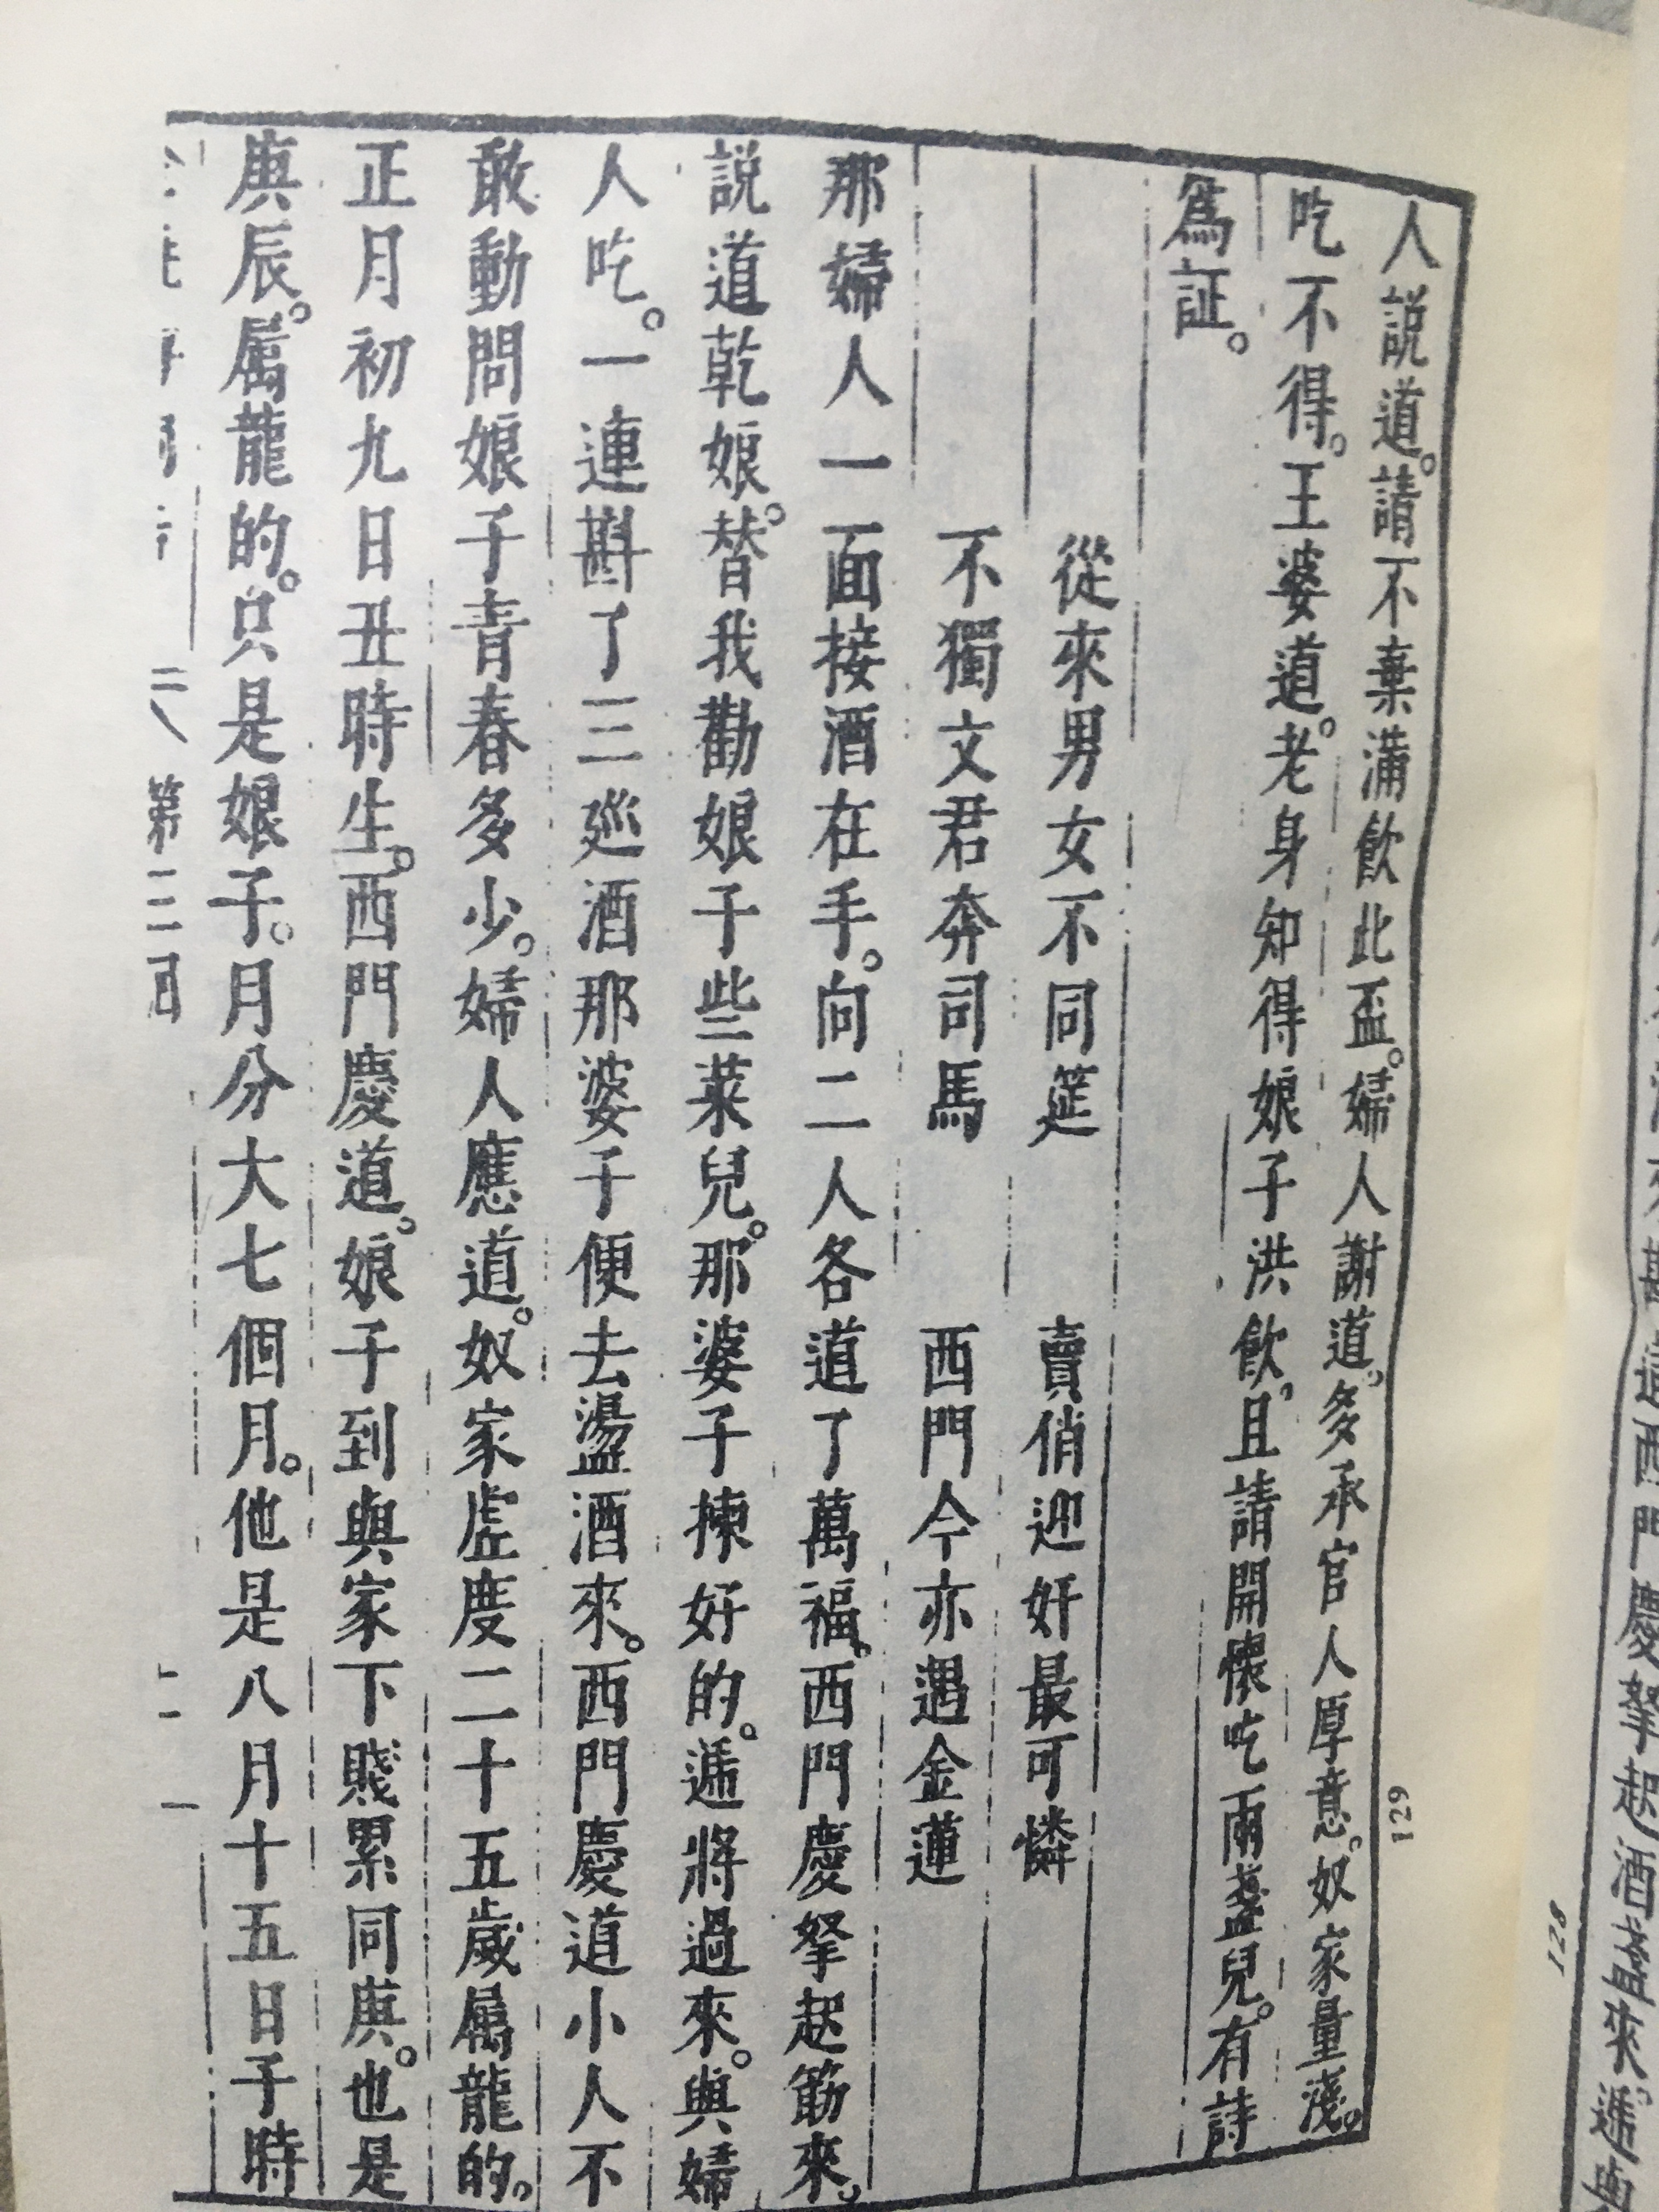 遞與
這西門慶拏起酒盞來
128
129
人說道。請不棄滿飲此盃。婦人謝道。多承官人厚意。奴家量淺。
吃不得。王婆道。老身知得娘子洪飲。且請開懷吃兩盞兒。有詩
爲証。
從來男女不同筵 賣俏迎奸最可憐
不獨文君奔司馬 西門今亦遇金蓮
那婦人一面接酒在手。向二人各道了萬福。西門慶拏起筯來。
說道乾娘。替我勸娘子些菜兒。那婆子揀好的。遞將過來。與婦
人吃。一連斟了三廵酒那婆子便去盪酒來。西門慶道小人不
敢動問娘子青春多少。婦人應道。奴家虛度二十五歲属龍的。
正月初九日丑時生。西門慶道。娘子到與家下賤累同庚。也是
庚辰。属龍的。只是娘子。月分大七個月。他是八月十五日子時
第三回